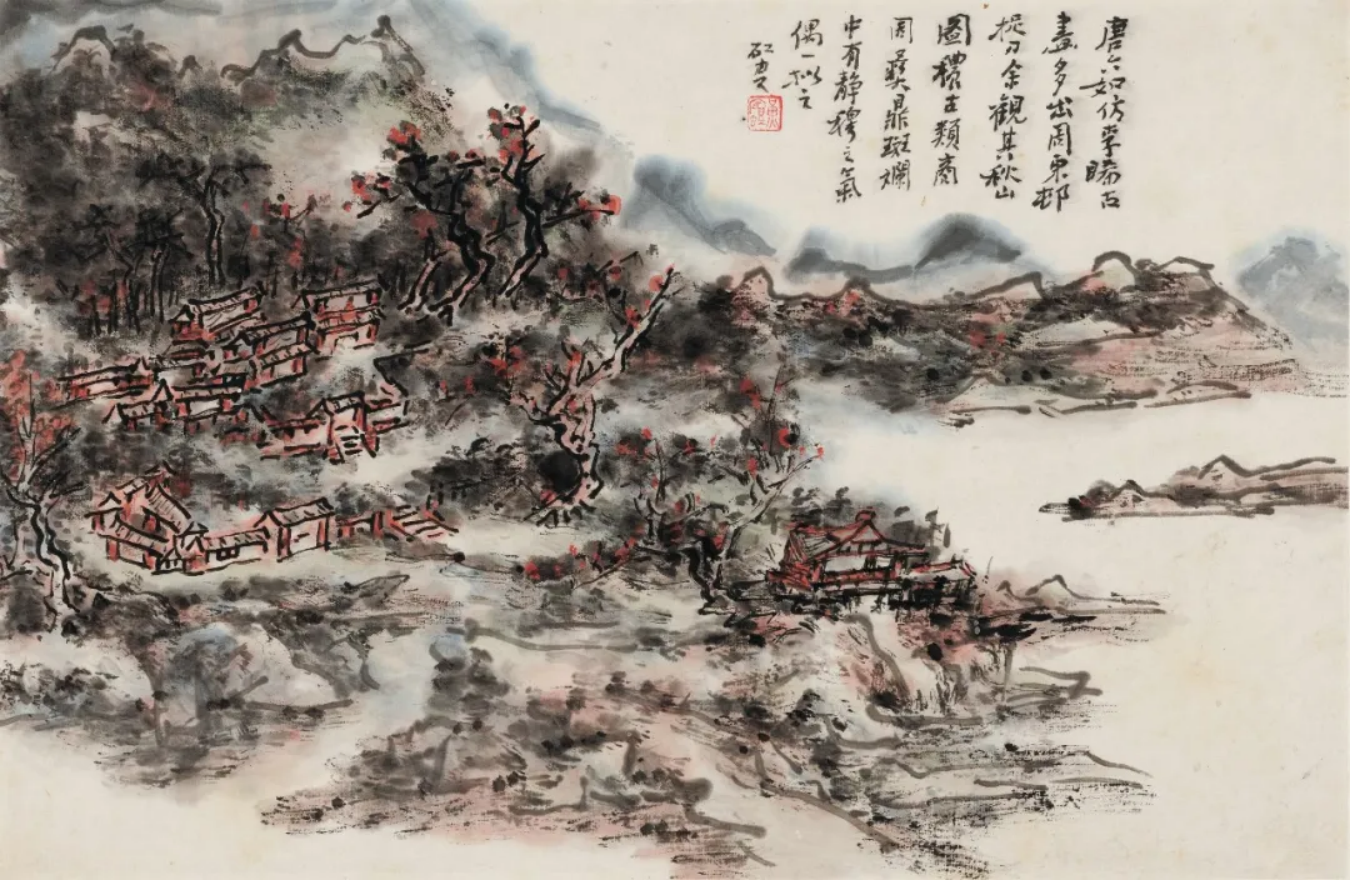 唐六如仿李晞古
畫多出周東邨
捉刀余觀其秋山
圖穠古類商
周彝鼎斑斕
中有靜穆之氣
偶一拟之
虹叟